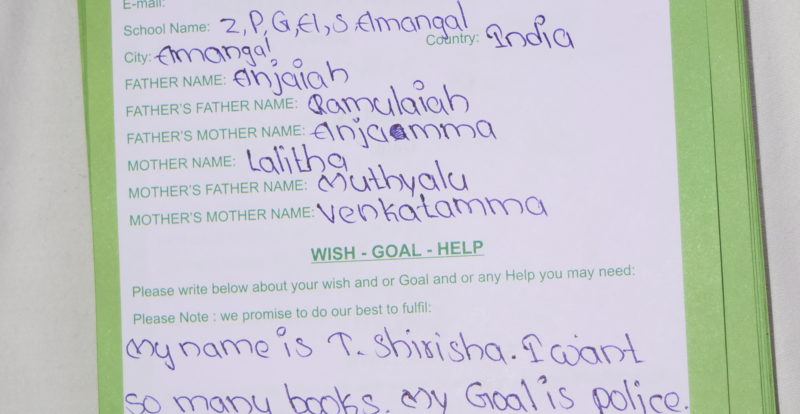 E-mail:
School Name: Z,P,G,H,S Amangal
City: Amangal Country: India
FATHER NAME: Anjaiah
FATHER'S FATHER NAME: Ramulaiah
FATHER'S MOTHER NAME: Anjaamma
MOTHER NAME: Lalitha
MOTHER'S FATHER NAME: Muthyalu
MOTHER'S MOTHER NAME: Venkatamma
WISH - GOAL - HELP
Please write below about your wish and or Goal and or any Help you may need:
Please Note : we promise to do our best to fulfil:
My name is T. Shirisha. I want
so many books. My Goal is police.